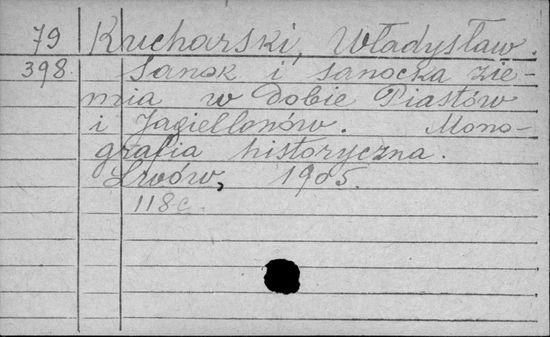 79 Kucharski, Władysław.
398. Sanok i sanocka zie-
mia w dobie Piastów
i Jagiellonów. Mono-
grafia historyczna.
Lwów, 1905.
118c.